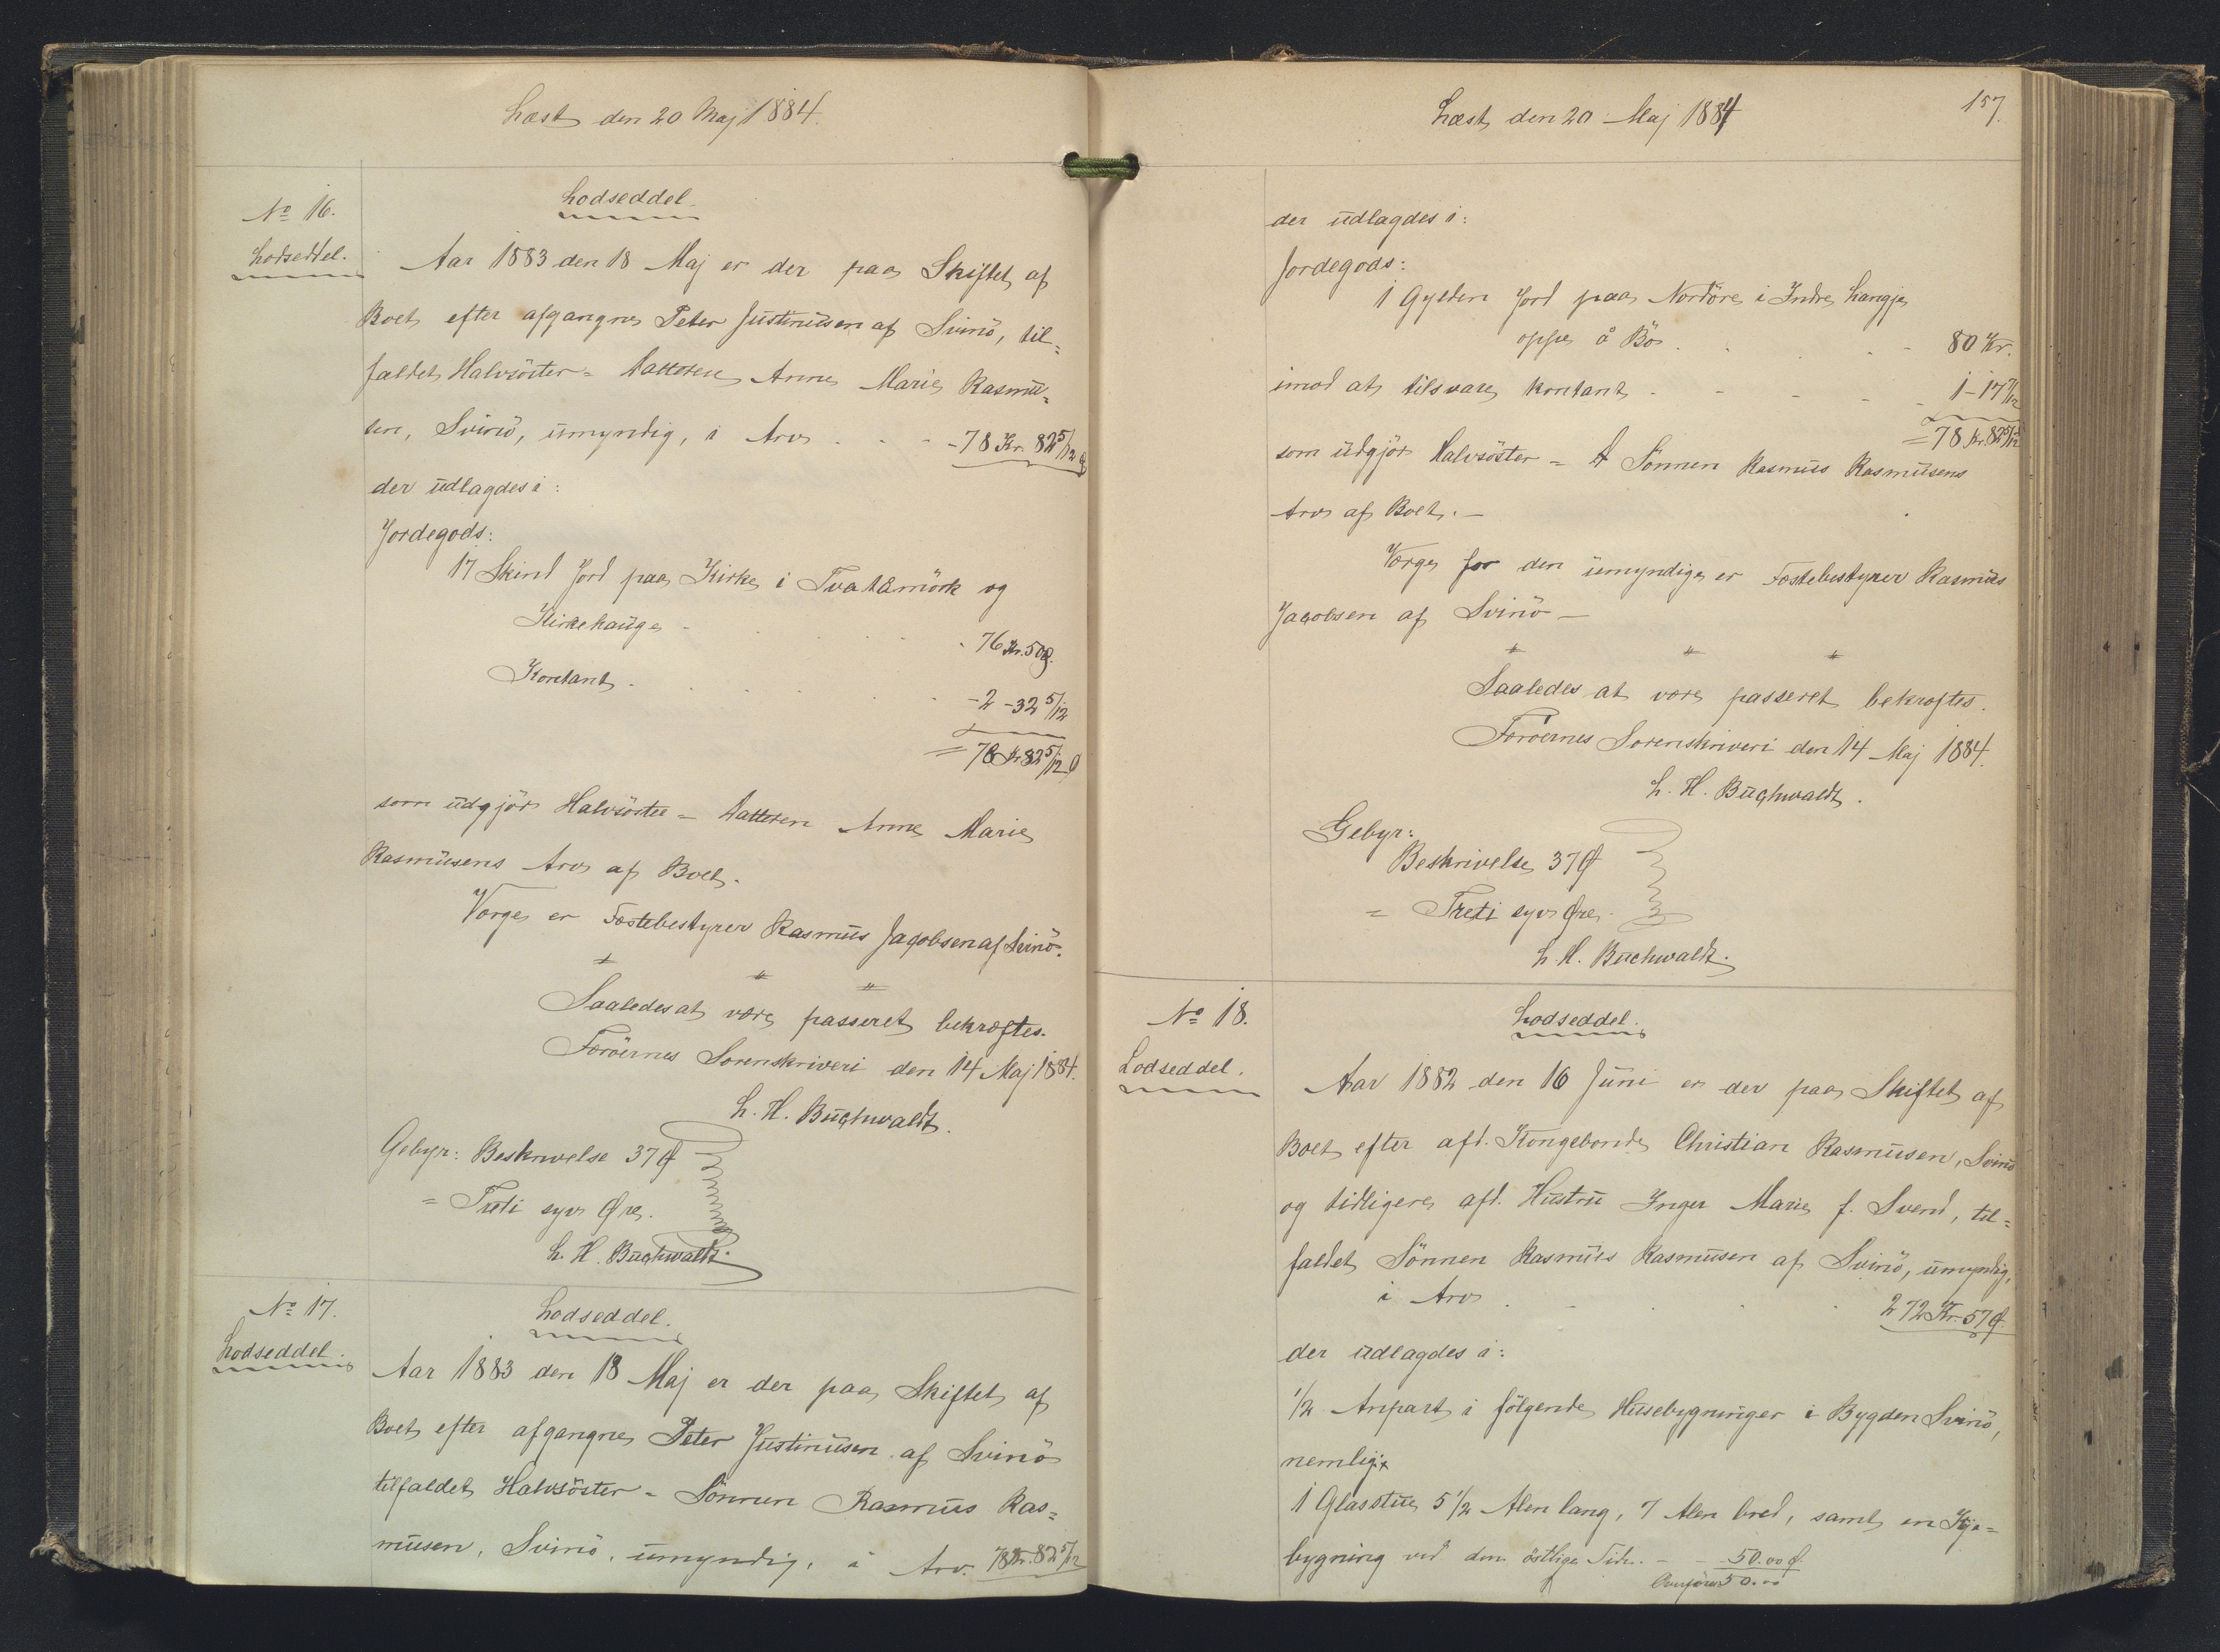 Læst den 20 Maj 1884.
No 16.
Lodseddel.
Lodseddel.
Aar 1883 den 18 Maj er der paa Skiftet af
Boet efter afgangne Peter Justinusen af Svinö, til=
faldet Halvsöster= Datteren Anne Marie Rasmu=
sen, Svinö, umyndig, i Arv - - 78 Kr. 82 5/12 Ø
der udlagdes i:
Jordegods:
17 Skind Jord paa Kirke i Tvatamörk og
Kirkehauge - 76 Kr. 50 Ø.
Kontant - 2 - 32 5/12
= 78 Kr. 82 5/12 Ø
som udgjör Halvsöster= Datteren Anne Marie
Rasmusens Arv af Boet.
Værge er Fæstebestyrer Rasmus Jacobsen af Svinö.
Saaledes at være passeret bekræftes.
Færöernes Sorenskriveri den 14 Maj 1884.
L. H. Buchwaldt.
Gebyr: Beskrivelse 37 Ø
= Treti syv Øre.
L. H. Buchwaldt.
No 17.
Lodseddel.
Lodseddel.
Aar 1883 den 18 Maj er der paa Skiftet af
Boet efter afgangne Peter Justinusen af Svinö
tilfaldet Halvsöster= Sönnen Rasmus Ras=
musen, Svinö, umyndig, i Arv. 78 Kr. 82 5/12
Læst den 20 Maj 1884
157.
der udlagdes i:
Jordegods:
1 Gylden Jord paa Nordöre i Indre Hangje
oppe å Bö - - 80 Kr.
imod at tilsvare kontant - - - - - 1 - 17 7/12
= 78 Kr. 82 5/12
som udgjör Halvsöster= Sönnen Rasmus Rasmusens
Arv af Boet. -
Værge for den umyndige er Fæstebestyrer Rasmus
Jacobsen af Svinö -
Saaledes at være passeret bekræftes.
Færöernes Sorenskriveri den 14 Maj 1884.
L. H. Buchwaldt.
Gebyr:
Beskrivelse 37 Ø
= Treti syv Øre.
L. H. Buchwaldt.
No 18.
Lodseddel.
Lodseddel.
Aar 1882 den 16 Juni er der paa Skiftet af
Boet efter afd. Kongebonde Christian Rasmusen, Svinö
og tidligere afd. Hustru Inger Marie f. Svend, til=
faldet Sönnen Rasmus Rasmusen af Svinö, umyndig,
i Arv - 272 Kr. 57 Ø.
der udlagdes i:
1/2 Anpart i fölgende Husebygninger i Bygden Svinö,
nemlig:
1 Glasstue 5 1/2 Alen lang, 7 Alen bred, samt en
bygning ved den östlige Side. - - 50.00 Ø.
Overföres 50.00